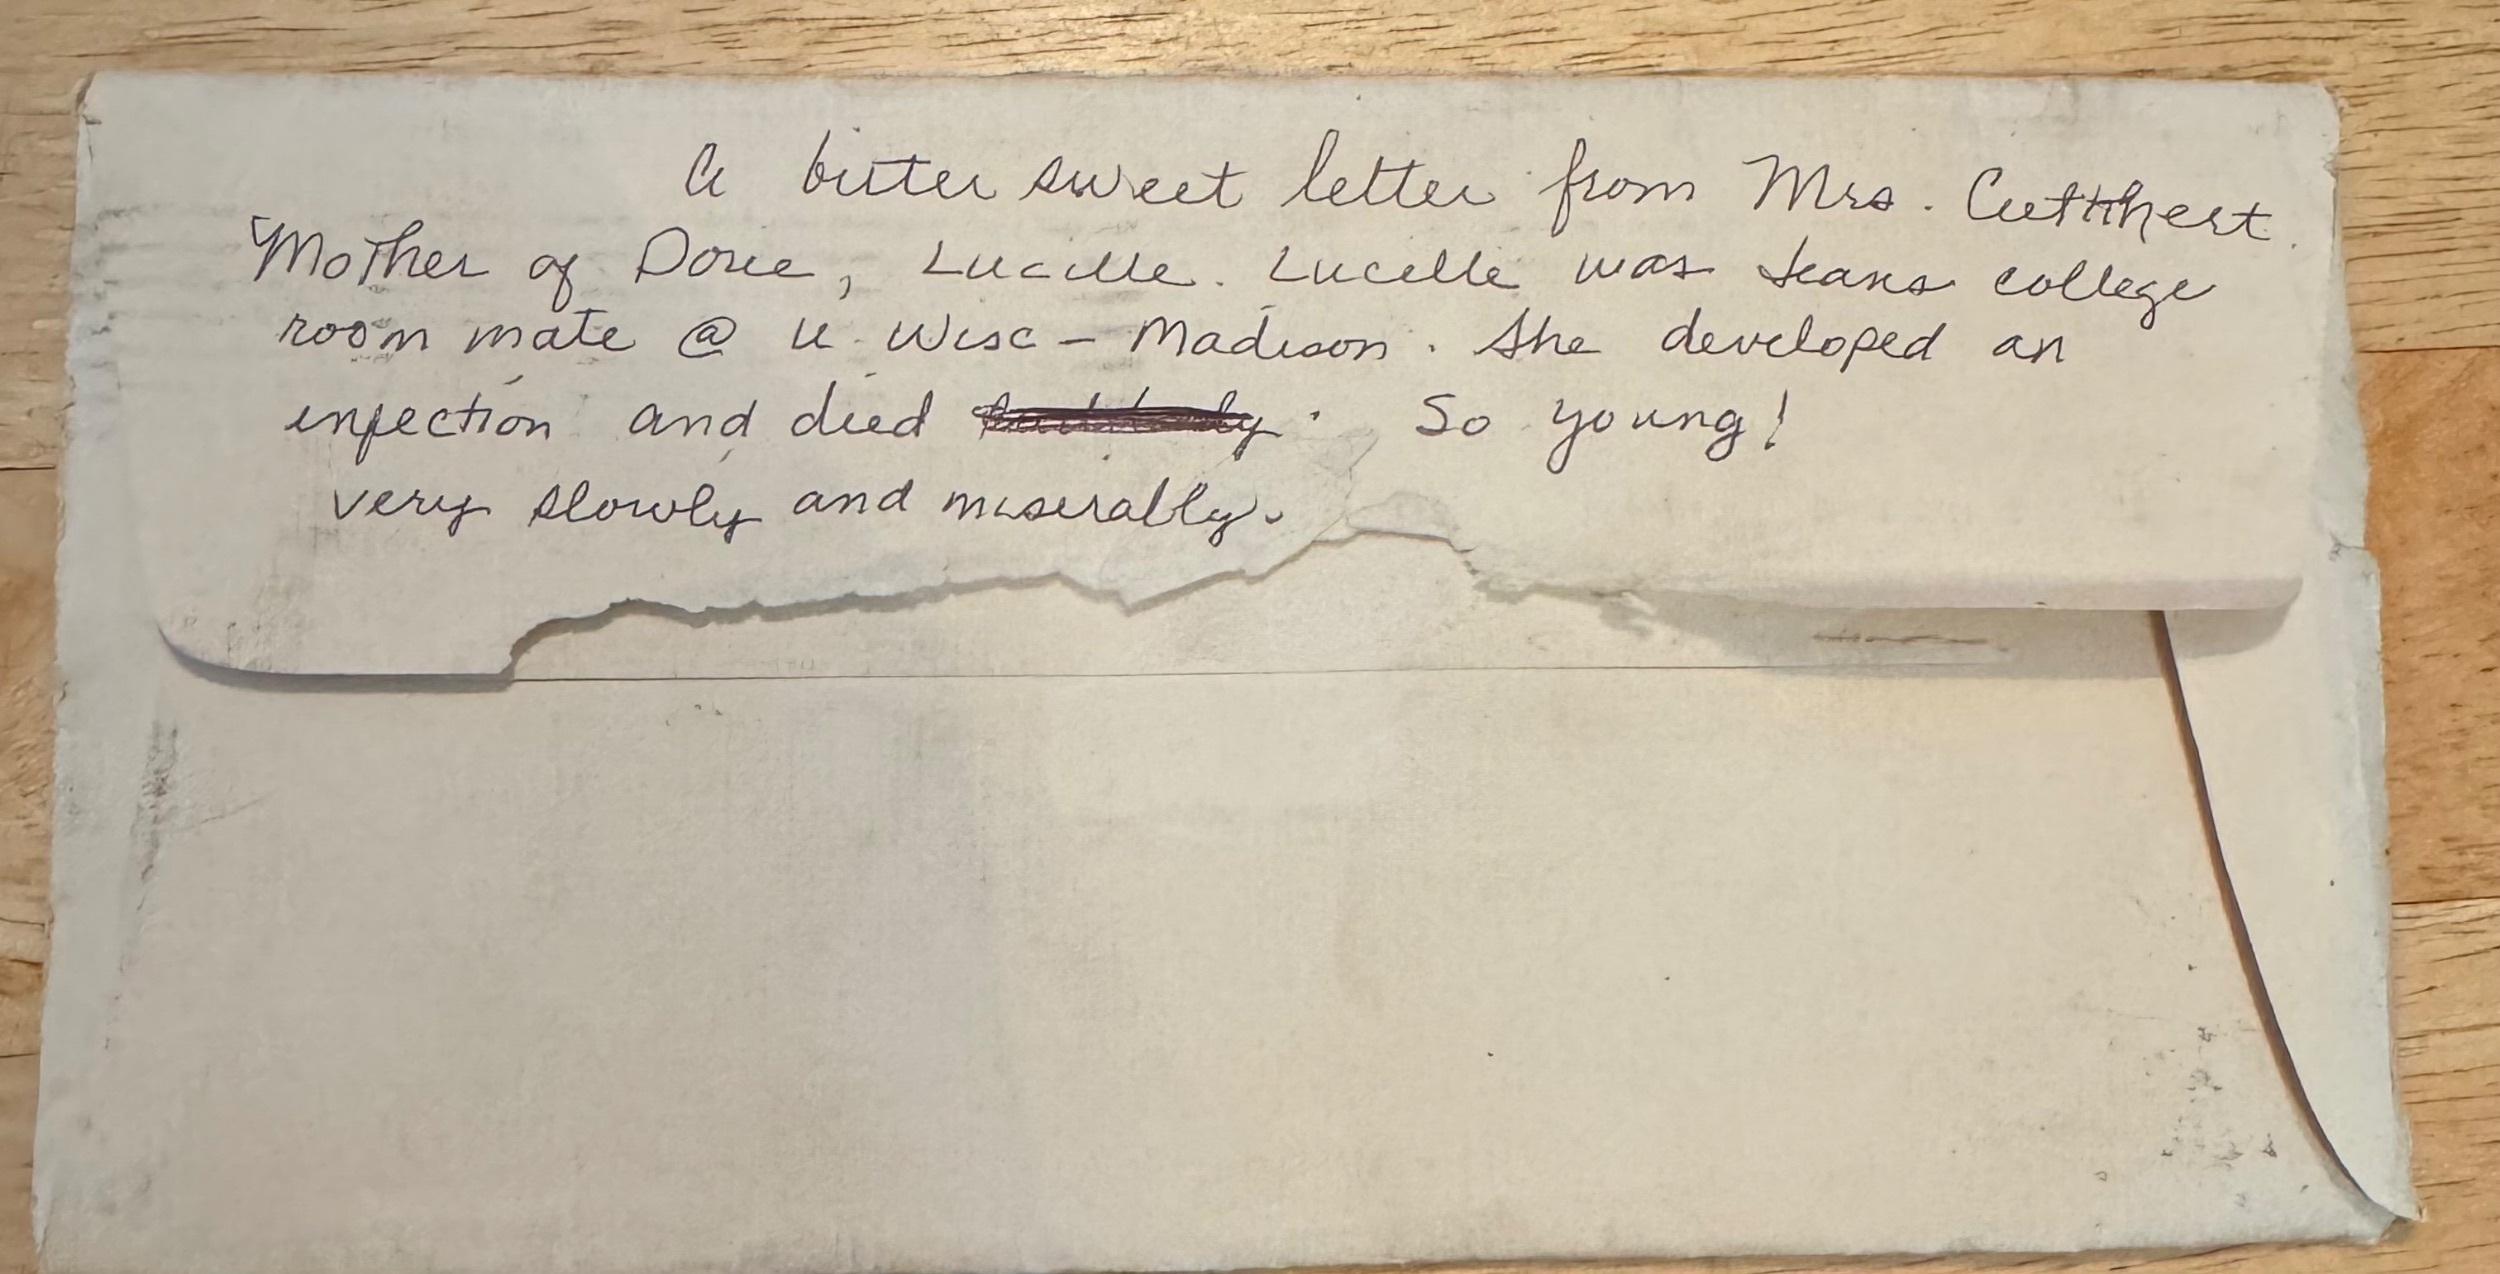 A bitter sweet letter from Mrs. Cuthbert.
Mother of Dorie, Lucille. Lucille was Jeans college
room mate @ U. Wisc - Madison. She developed an
infection and died. So young!
very slowly and miserably.